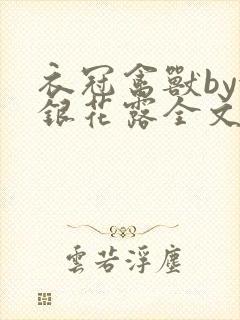 衣冠禽獸by
銀花露全文
雲若浮塵